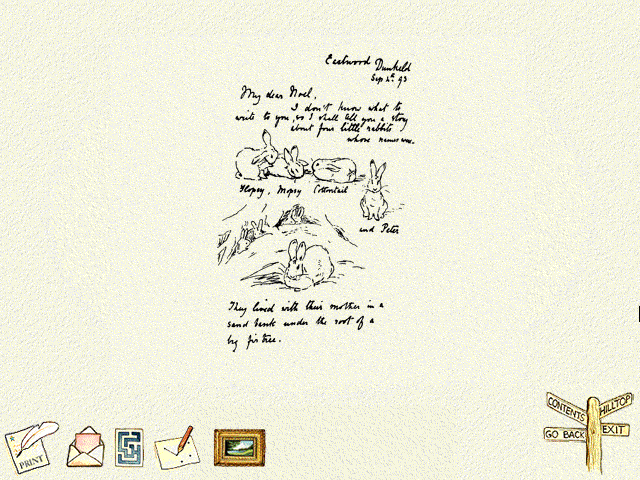 Eastwood Dunkeld
Sep 4th 93
My dear Noel,
I don't know what to
write to you, so I shall tell you a story
about four little rabbits
whose names were.
Flopsy, Mopsy Cottontail
and Peter
They lived with their mother in a
sand bank under the root of a
big fir tree.
PRINT
CONTENTS
HILLTOP
GO BACK
EXIT